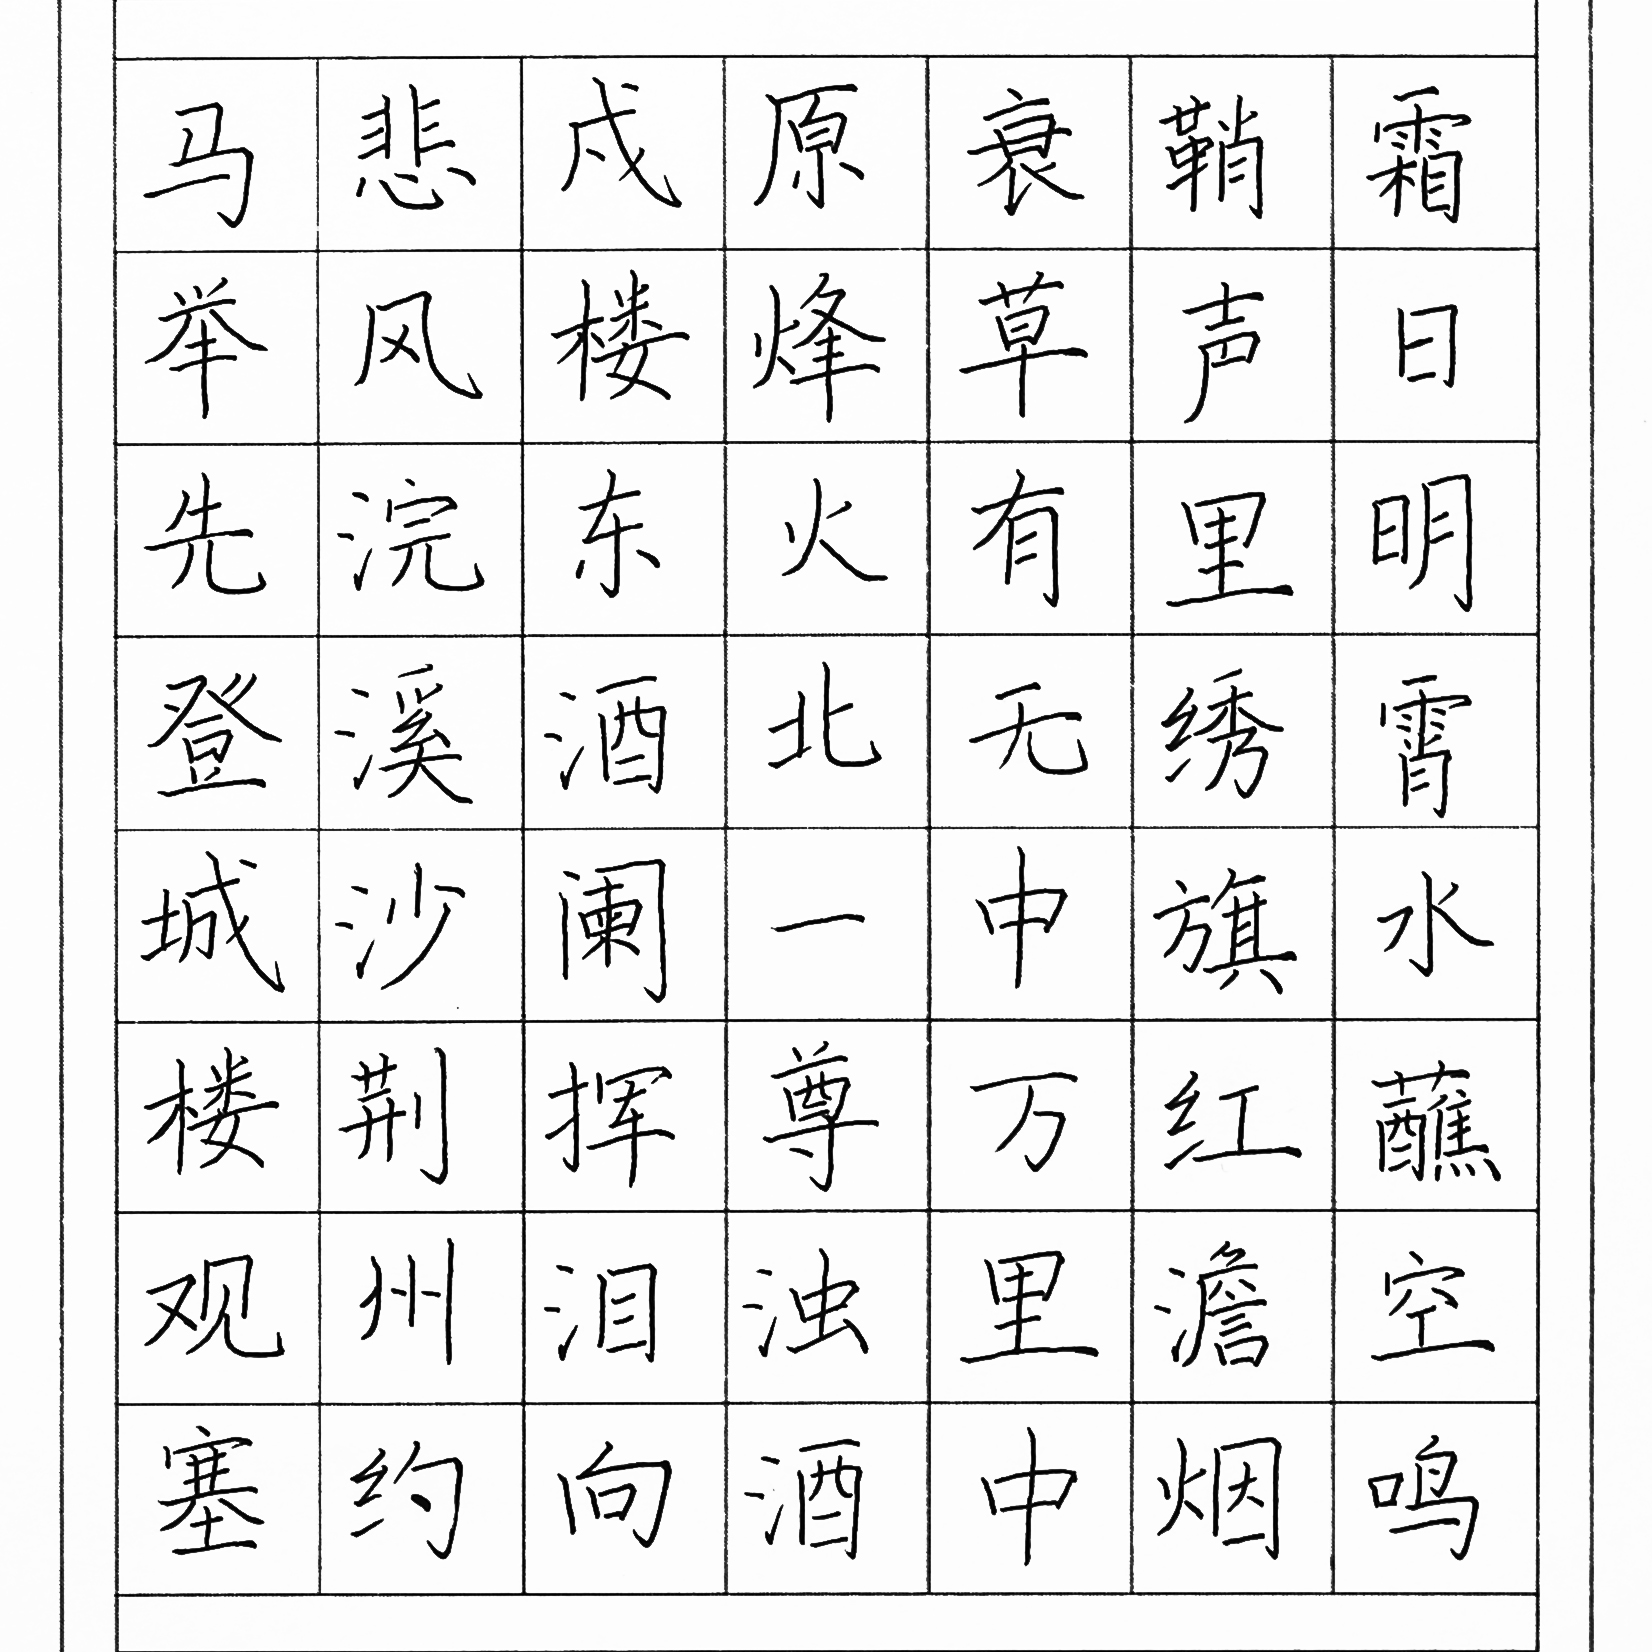 霜日明霄水蘸空鸣
鞘声里绣旗红澹烟
衰草有无中万里中
原烽火北一尊浊酒
戍楼东酒阑挥泪向
悲风浣溪沙荆州约
马举先登城楼观塞